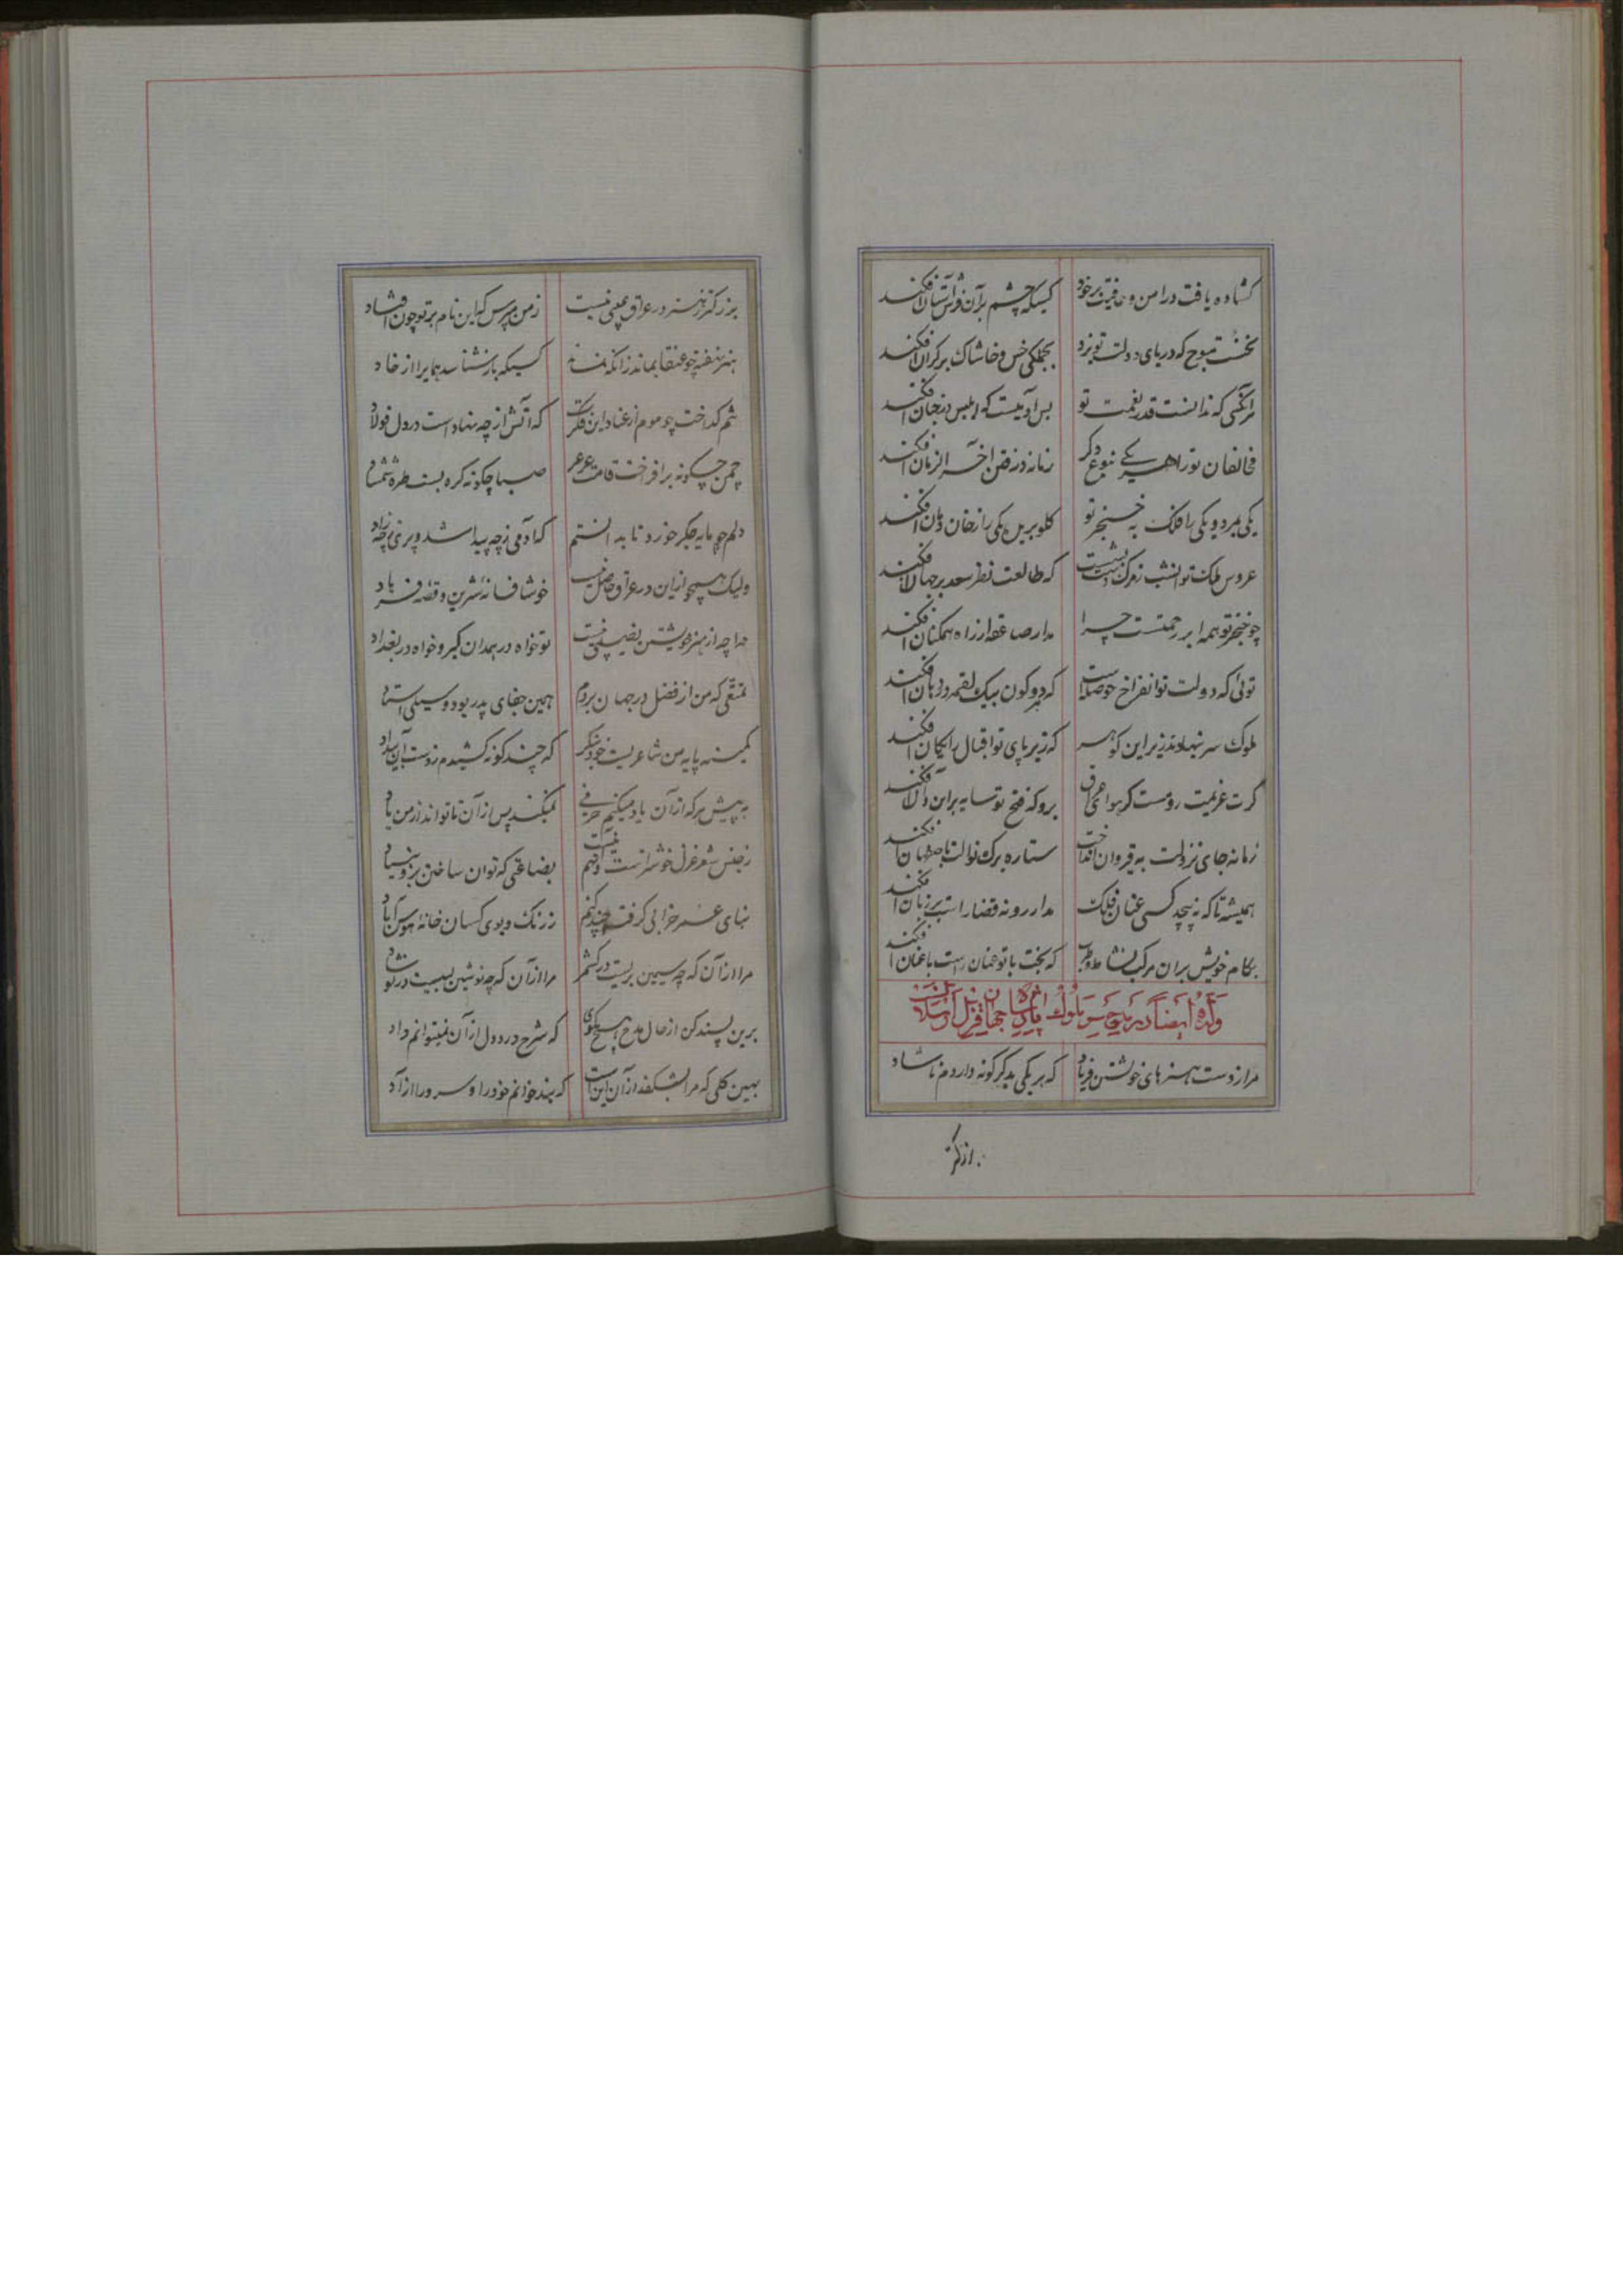 گشاده یافت در امن و عافیت بر خود کسیکه چشم بر آن فرخ آستان افکند
نخست موج که دریای دولت تو بزد بجملگی خس و خاشاک بر کران افکند
هر آنکسی که ندانست قدر نعمت تو بس آدمیست که ابلیس در جنان افکند
مخالفان تو را هر یکی بنوع دگر زمانه در فتن آخر الزمان افکند
یکی بمرد و یکی را فلک به خنجر تو گلو برید و یکی را ز خان و مان افکند
عروس ملک تو آنشب ز مرگ دست بشست که طالعت نظر سعد بر جهان افکند
چو خنجر تو همه ابر رحمتست چرا مدار صاعقه از راه همگنان افکند
توئی که دولت تو آنفراخ حوصله است که دو کون بیک لقمه در دهان افکند
ملوک سر بنهادند زیر این گوهر که زیر پای تو اقبال رایگان افکند
گرت عزیمت رومست گر هوای عراق برو که فتح تو سایه بر این و آن افکند
زمانه جای نزولت به قیروان انداخت ستاره برگ نوالت افکند
همیشه تا که نپیچد کسی عنان فلک مدار رو نه قضا را است بر زبان افکند
بکام خویش بران مرکب نشاط و طرب که بخت با تو عنان راست با عنان افکند
وله ایضاً در مدیح ملوک پادشاه جهان قزل ارسلان
مرا ز دست هنرهای خویشتن فریاد که هر یکی بدگر گونه داردم ناشاد
بزرگتر ز هنر در عراق عیبی نیست ز من مپرس که این نام بر تو چون افتاد
هنر نهفته چو عنقا بماند زانکه نماند کسیکه باز شناسد همایرا از خاد
تنم گداخت چو موم از عنا در این فکرت که آتش از چه نهاد است در دل فولاد
چمن چگونه برافراخت قامت عرعر صبا چگونه گره بست طره شمشاد
دلم چه مایه جگر خورد تا بدانستم که آدمی ز چه پیدا شد و پری ز چه زاد
ولیک هیچ از این در عراق حاصل نیست خوشا فسانه شیرین و قصه فرهاد
مرا چه از هنر خویشتن نصیبی نیست تو خواه در همدان گیر و خواه در بغداد
تمتعی که من از فضل در جهان بردم همین جفای پدر بود و سیلی استاد
کمینه پایه من شاعریست خود بنگر که چند گونه کشیدم ز دست آن بیداد
به پیش هر که از آن یاد میکنم حرفی نمیکند پس از آن تا تواند از من یاد
ز جنس شعر غزل خوشتر است و آنهم نیست بضاعتی که توان ساختن بر و بنیاد
بنای عمر خرابی گرفت چند کنم ز رنگ و بوی کسان خانه هوس آباد
مرا از آن که چه سیمین بریست در کشمر مرا از آن که چه نوشین لبیست در نوشاد
برین پسند کن از حال مدح هیچ مگوی که شرح درد دل از آن نمیتوانم داد
بهین گلی که مرا بشکفد از آن اینست که بنده خوانم خود را و سرو را آزاد